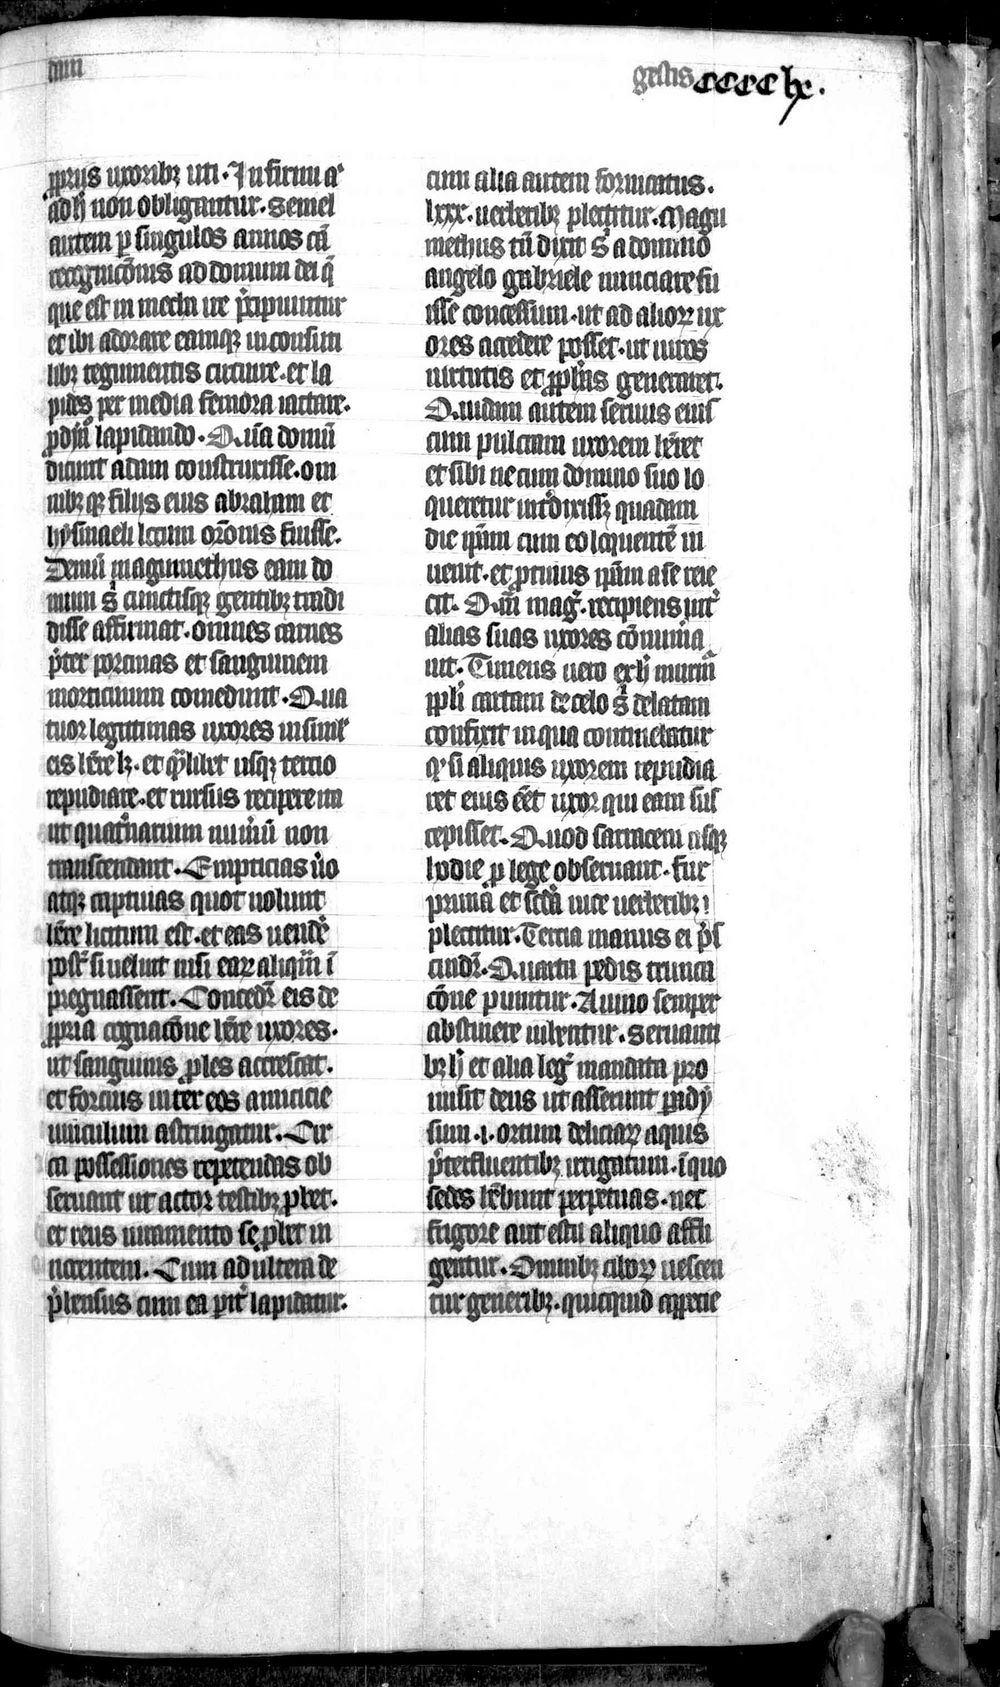 gestis cccclx.
pprijs uxoribꝫ uti. Infirmi aͭ
ad h̄ non obligantur. Semel
autem ꝑ singulos annos cā
recognicōnis ad domum dei q̄
que est in mecha ire p̄cipiuntur
et ibi adorare eamqꝫ inconsuti
libꝫ tegumentis circuire. et la
pides per media femora iactare.
ꝓ dyaƀo lapidando. Quā domū
dicunt adam construxisse. om
nibꝫqꝫ filijs eius abraham et
hysmaeli locum orōnis fuisse.
Demū magumethus eam do
mum s̄ cunctisqꝫ gentibꝫ tradi
disse affirmat. Omnes carnes
p̄ter porcinas et sanguinem
morticinum comedunt. Qua
tuor legitimas uxores insimł
eis hēre lꝫ. et qᷓlibet usqꝫ tercio
repudiare. et rursus recipere ita
ut quaternarium numerū non
transcendant. Empticias ūo
atqꝫ captiuas quot uolunt
hēre licitum est. et eas uendēͤ
post̄ si uelint nisi eaꝝ aliquā ī
pregnassent. Concedit̄ eis de
ꝓpria cognacōne hēre uxores.
ut sanguinis ꝓles accrescat.
et forcius inter eos amicicie
uinculum astringatur. Cir
ca possessiones repetendas ob
seruant ut actor testibꝫ ꝓbet.
et reus iuramento se ꝓbet in
nocentem. Cum adultera de
p̄hensus cum ea pit̄ lapidatur.
cum alia autem fornicatus.
lxxx. uerberibꝫ plectitur. Magu
methus tn̄ dixit s̄ a domino
angelo gabriele nunciare fu
isse concessum. ut ad alioꝝ ux
ores accedere posset. ut uiros
uirtutis et ꝓph̄as generaret.
Quidam autem seruus eius
cum pulcram uxorem hēret
et sibi ne cum domino suo lo
queretur int̄dixissꝫ quadam
die ip̄am cum eo loquentē in
uenit. et ꝓtinus ip̄am a se reie
cit. Qām maḡ. recipiens int̄
alias suas uxores cōmuni͛a
uit. Timens uero ex h̄ murm̄
ppl̄i cartam de celo s̄ delatam
confixit in qua continebatur
qͥ si aliquis uxorem repudia
ret eius eēt uxor qui eam sus
cepisset. Quod sarraceni usqꝫ
hodie ꝓ lege obseruant. fur
prima et scd̄a uice uerberibꝫ
plectitur. Tercia manus ei p̄s
cindit̄. Quarta pedis trunca
cōne punitur. A uino semper
abstinere iubentur. seruanti
bꝫ h̄ et alia leḡ mandata pro
misit deus ut asserunt paꝛady
sum .i. ortum deliciaꝝ aquis
p̄terfluentibꝫ irrigatum. ī quo
sedes hēbunt perpetuas. nec
frigore aut estu aliquo affli
gentur. Omnibꝫ ciboꝝ uescen
tur generibꝫ. quicquid appetie